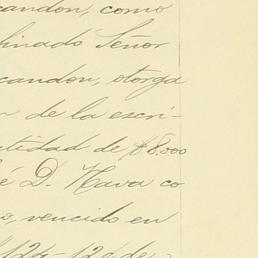 candon, como
finado Señor
scandon, otorga
n de la escri-
ntidad de $8,000
é D. Nava co
o, vencido en